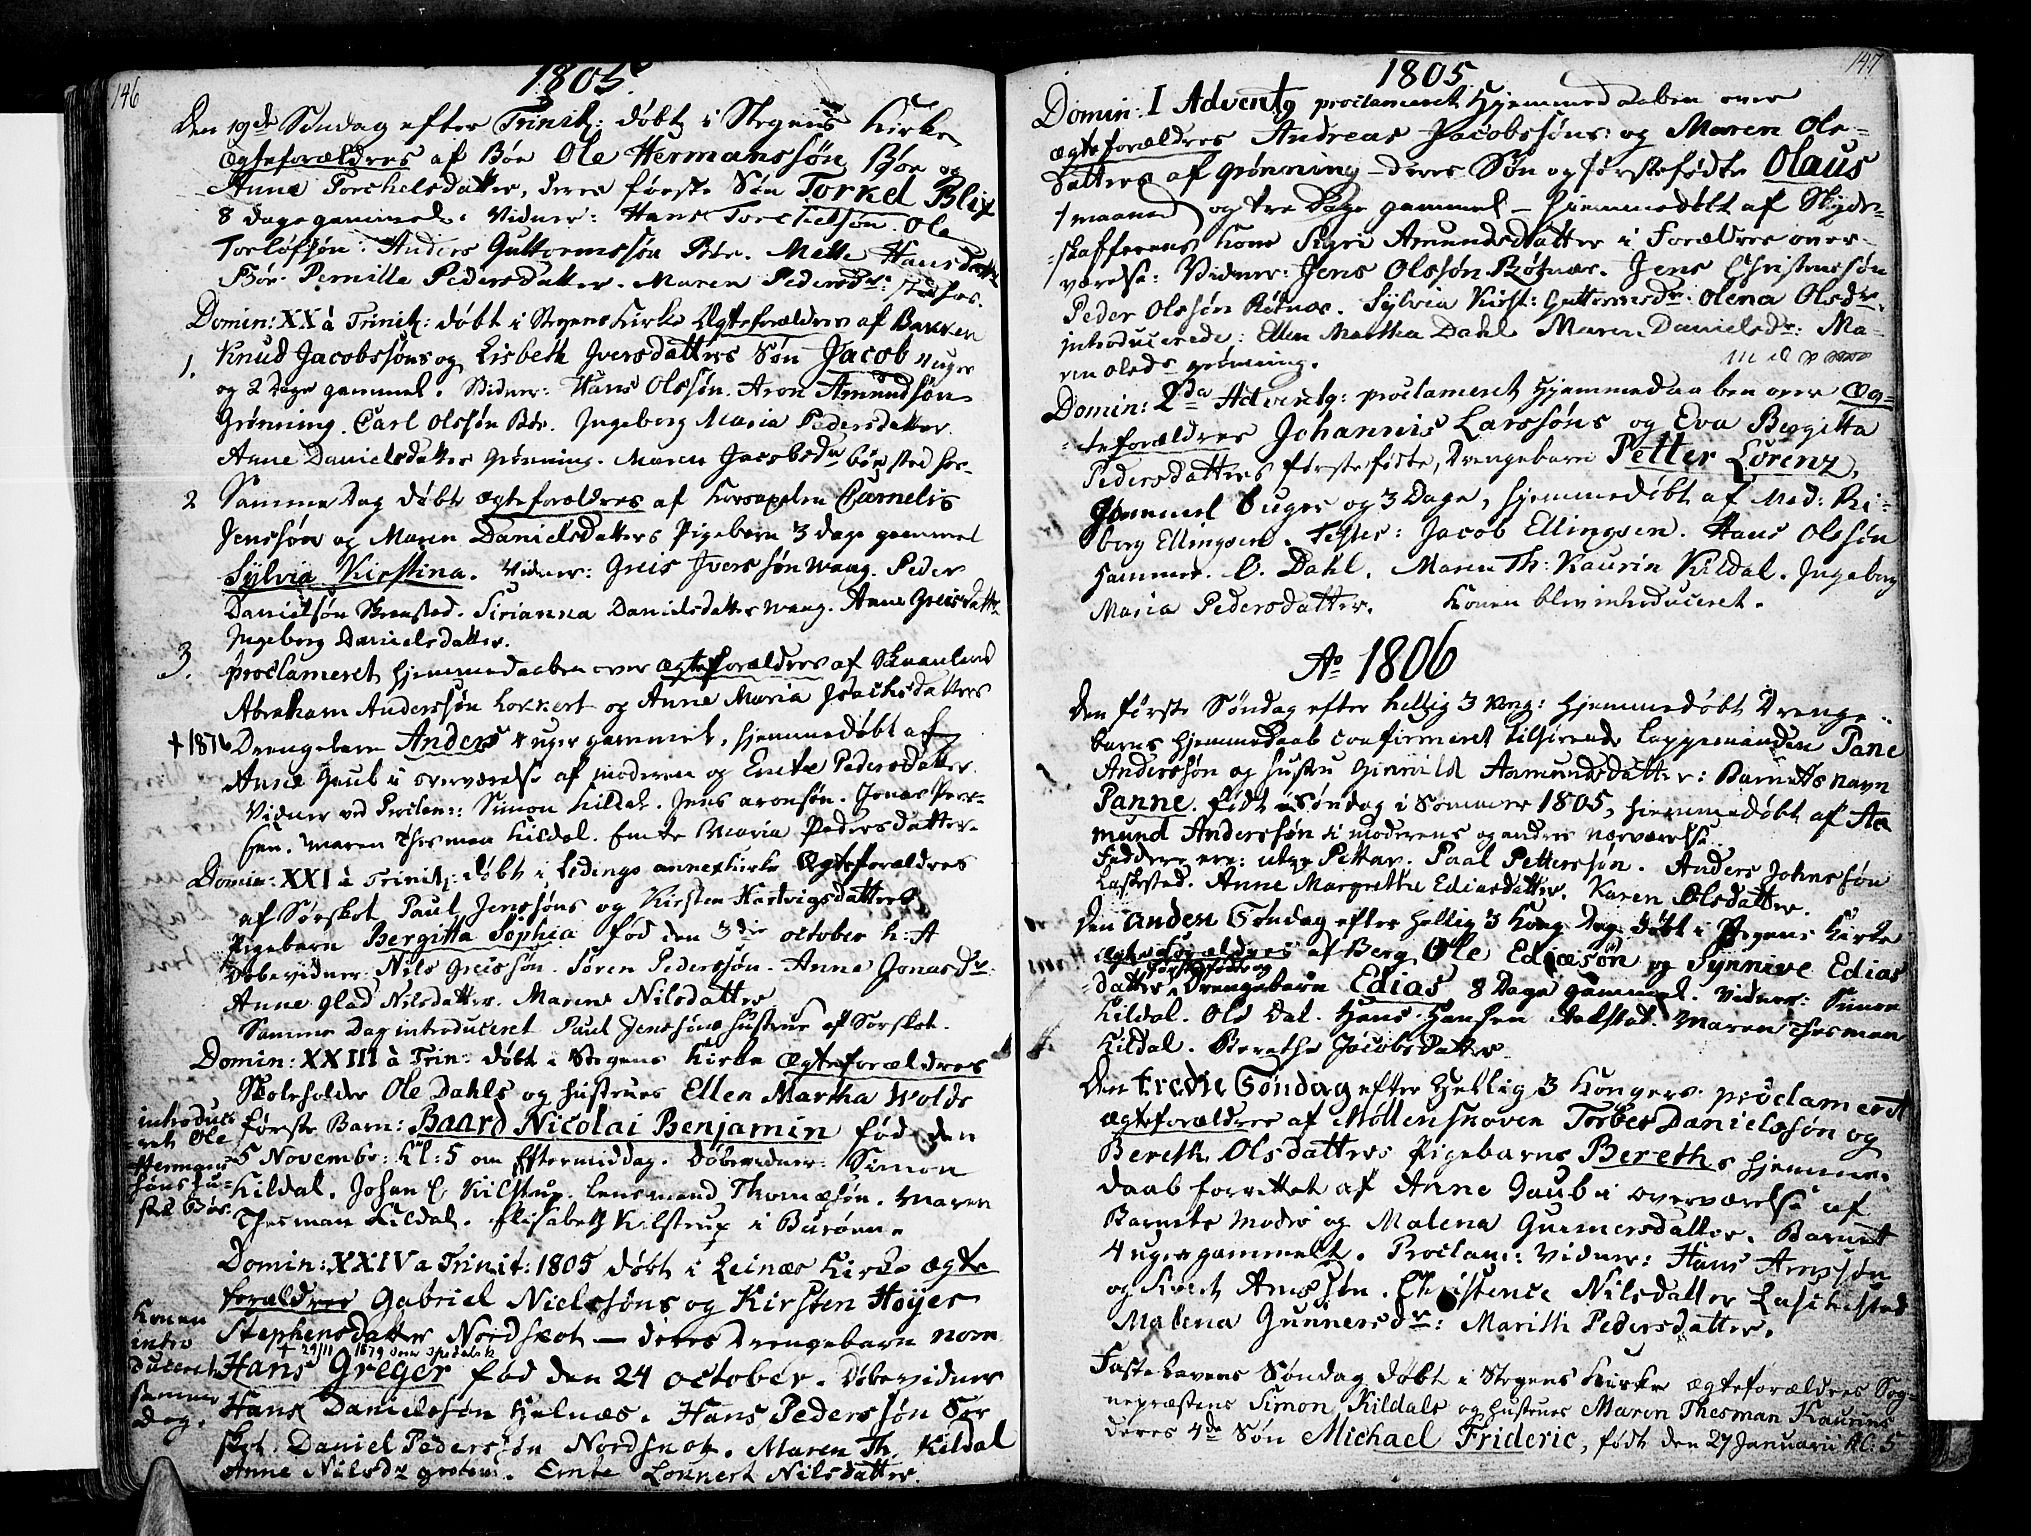 146
1805
Den 19de Søndag efter Trinit: døbt i Stegens Kirke
Ægteforældres af Bøe Ole Hermanssøn Bøe og
Anne Torchelsdatter, deres første Søn Torkel Blix
8 Dage gammel. Vidner: Hans Ole
Torlofsøn. Anders Guttormssøn Bøe. Mette Hansdatter
Bøe. Pernille Pedersdatter. Maren Pedersdr:
Domin: XX à Trinit: døbt i Stegens Kirke Ægteforældres af Bakken
1. Knud Jacobssøns og Lisbeth Iversdatters Søn Jacob 4 uger
og 2 Dage gammel. Vidner: Hans Olssøn. Aron Amundsøn
Grønning. Carl Olssøn Bøe. Ingeborg Maria Pedersdatter.
Anne Danielsdatter Grønning. Maren Jacobsdr
2 Samme Dag døbt ægteforældres af Cornelis
Jenssøn og Maren Danielsdatters Pigebarn 3 dage gammel
Sylvia Kirstina. Vidner: Greis Iverssøn Waag. Peder
Danielsøn Skensted. Sirianna Danielsdatter Waag. Anne Greisdatter
Ingeborg Danielsdatter.
3. proclameret hjemmedaaben over ægteforældres af Skaanland
Abraham Anderssøn Lokkert og Anne Maria Isachsdatters
+1876 Drengebarn Anders 4 uger gammel, hjemmedøbt af
Anne Gaub i overværelse af moderen og Emte Pedersdatter.
Vidner ved Proclam: Simon Kildal. Jens Aronsøn. Jonas Peer-
sen. Maren Thesman Kildal. Emte Maria Pedersdatter.
Domin: XXI à Trinit: døbt i Ledings annexkirke Ægteforældres
af Sørskot Paul Jenssøns og Kirsten Hartvigsdatters
Pigebarn Bergitta Sophia fød den 3die october h: A
Døbevidner: Nils Greissøn. Søren Pederssøn. Anne Jonasdr.
Anne Glad Nilsdatter. Maren Nilsdatter
Samme Dag introduceret Paul Jenssøns hustrue af Sørskot.
Domin: XXIII à Trin: døbt i Stegens Kirke Ægteforældres
Skoleholder Ole Dahls og hustrues Ellen Martha Wolds
første Barn: Baard Nicolai Benjamin fød den
5 November: Kl: 5 om Eftermiddag. Døbevidner: Simon
Kildal. Johan C Kilstrup. Lensmand Thomæsøn. Maren
Thesman Kildal. Elisabeth Kilstrup i Burøen.
introduce
ret Ole
Hermans
søns hu-
stru Bøe.
Domin: XXIV à Trinit: 1805 døbt i Leinæs Kirke ægte
forældres Gabriel Nielssøns og Kirsten Høyer
Stephensdatter Nordskot — deres Drengebarn nom
+ 29/11 1879
Hans Greger fød den 24 october. Døbevidner
Hans Danielssøn Helnæs. Hans Pederssøn Sør
skot. Daniel Pederssøn Nordskot. Maren Th. Kildal
Anne Nilsdr. Emte Lokkert Nilsdatter.
Konen
intro
duceret
samme
Dag.
147
1805
Domin: I Advents proclameret Hjemmedaaben over
ægteforældres Andreas Jacobssøns: og Maren Ols-
datters af Grønning – deres Søn og førstefødte Olaus
1 maaned og tre Dage gammel – Hjemmedøbt af Skyds-
skafferens Kone Sigri Amundsdatter i Forældres over-
værelse: Vidner: Jens Olssøn Røtnæs. Jens Christenssøn
Peder Olssøn Røtnæs. Sylvia Kirst: Guttormsdr: Olena Olsdr.
introducerede: Ellen Martha Dahl Maren Danielsdr: Ma-
ren Olsdr Grønning.
Domin: 2da Advents: proclameret Hjemmedaaben over Æg-
teforældres Johannis Larssøns og Eva Bergitta
Pedersdatters førstefødte, Drengebarn Petter Lorenz,
Gammel 6 uger og 3 Dage, hjemmedøbt af Mad: Ri-
borg Ellingsen. Testes: Jacob Ellingsen. Hans Olssøn
Hammer. O. Dahl. Maren Th: Kaurin Kildal. Ingeborg
Maria Pedersdatter. Konen blev introduceret.
Ao 1806
Den første Søndag efter hellig 3 Kong: Hjemmedøbt Drenge-
barns hjemmedaab confirmeret tilhørende Lappemanden Pane
Anderssøn og hustru Aamundsdatter: Barnets navn
Panne. født i Søndag i Sommer 1805, hjemmedøbt af Aa
mund Anderssøn i moderens og andres nærværelse.
Faddere ere: Paal Petterssøn. Anders Johnssøn
Laskestad. Anne Margrethe Ediasdatter. Karen Olsdatter.
Den anden Søndag efter hellig 3 Kong: Dag døbt i Stegens Kirke
ægteforældres af Berg Ole Ediæsøn og Synnive Edias
førstefødte og
datter, Drengebarn Edias 8 Dage gammel. Vidner: Simon
Kildal. Ole Dal. Hans Hansen Aalstat. Maren Thesman
Kildal. Berethe Jacobsdatter
Den tredie Søndag efter Hellig 3 Kongers proclameret
ægteforældres af Møllensknoven Torber Danielssøn og
Bereth Olsdatters Pigebarns Bereths hjemme-
daab forrettet af Anne Gaub i overværelse af
Barnets Moder og Malena Gunnersdatter. Barnet
4 uger gammelt. Proclam: Vidner: Hans Arnssøn
og Knut Arnssøn. Christence Nilsdatter Laschestad
Malena Gunnersdr: Marith Pedersdatter.
Fastelavens Søndag døbt i Stegens Kirke ægteforældres Sog-
nepræstens Simon Kildals og hustrues Maren Thesman Kaurins
deres 4de Søn Michael Frideric, født den 27 Januarii Kl: 5